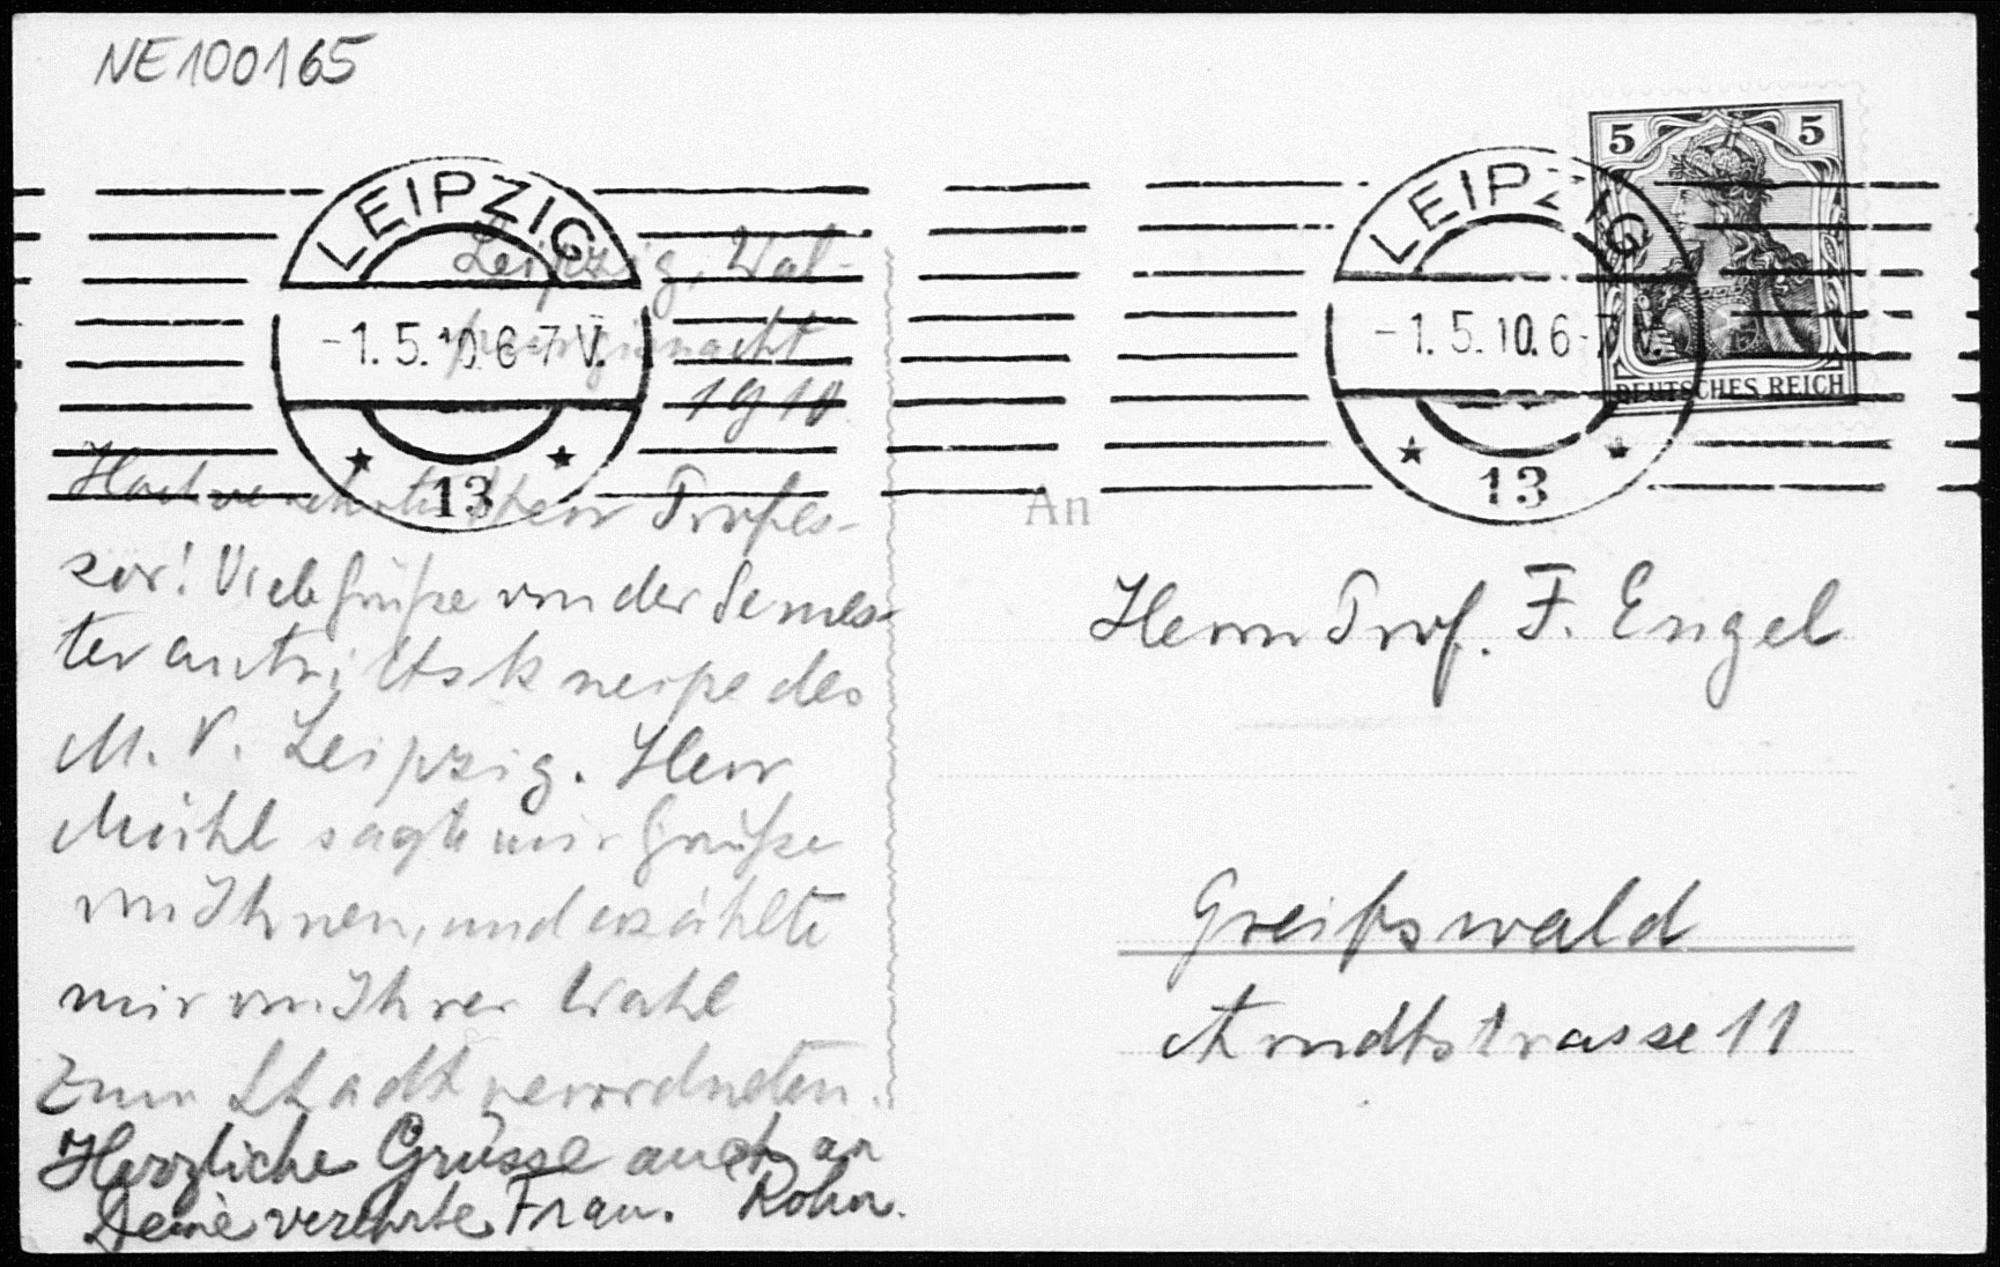 NE100165
LEIPZIG
-1.5.10.6-7V.
13
LEIPZIG
-1.5.10.6-7V.
13
5 5
DEUTSCHES REICH
Leipzig, Wal-
purgisnacht
1910.
Hochverehrter Herr Profes-
sor! Viele Grüße von der Semes-
terantrittskneipe des
M. V. Leipzig. Herr
sagte mir Grüße
von Ihnen, und erzählte
mir von Ihrer Wahl
zum Stadtverordneten.
Herzliche Grüsse auch an
Deine verehrte Frau. Rohn.
An
Herrn Prof. F. Engel
Greifswald
Arndtstrasse 11